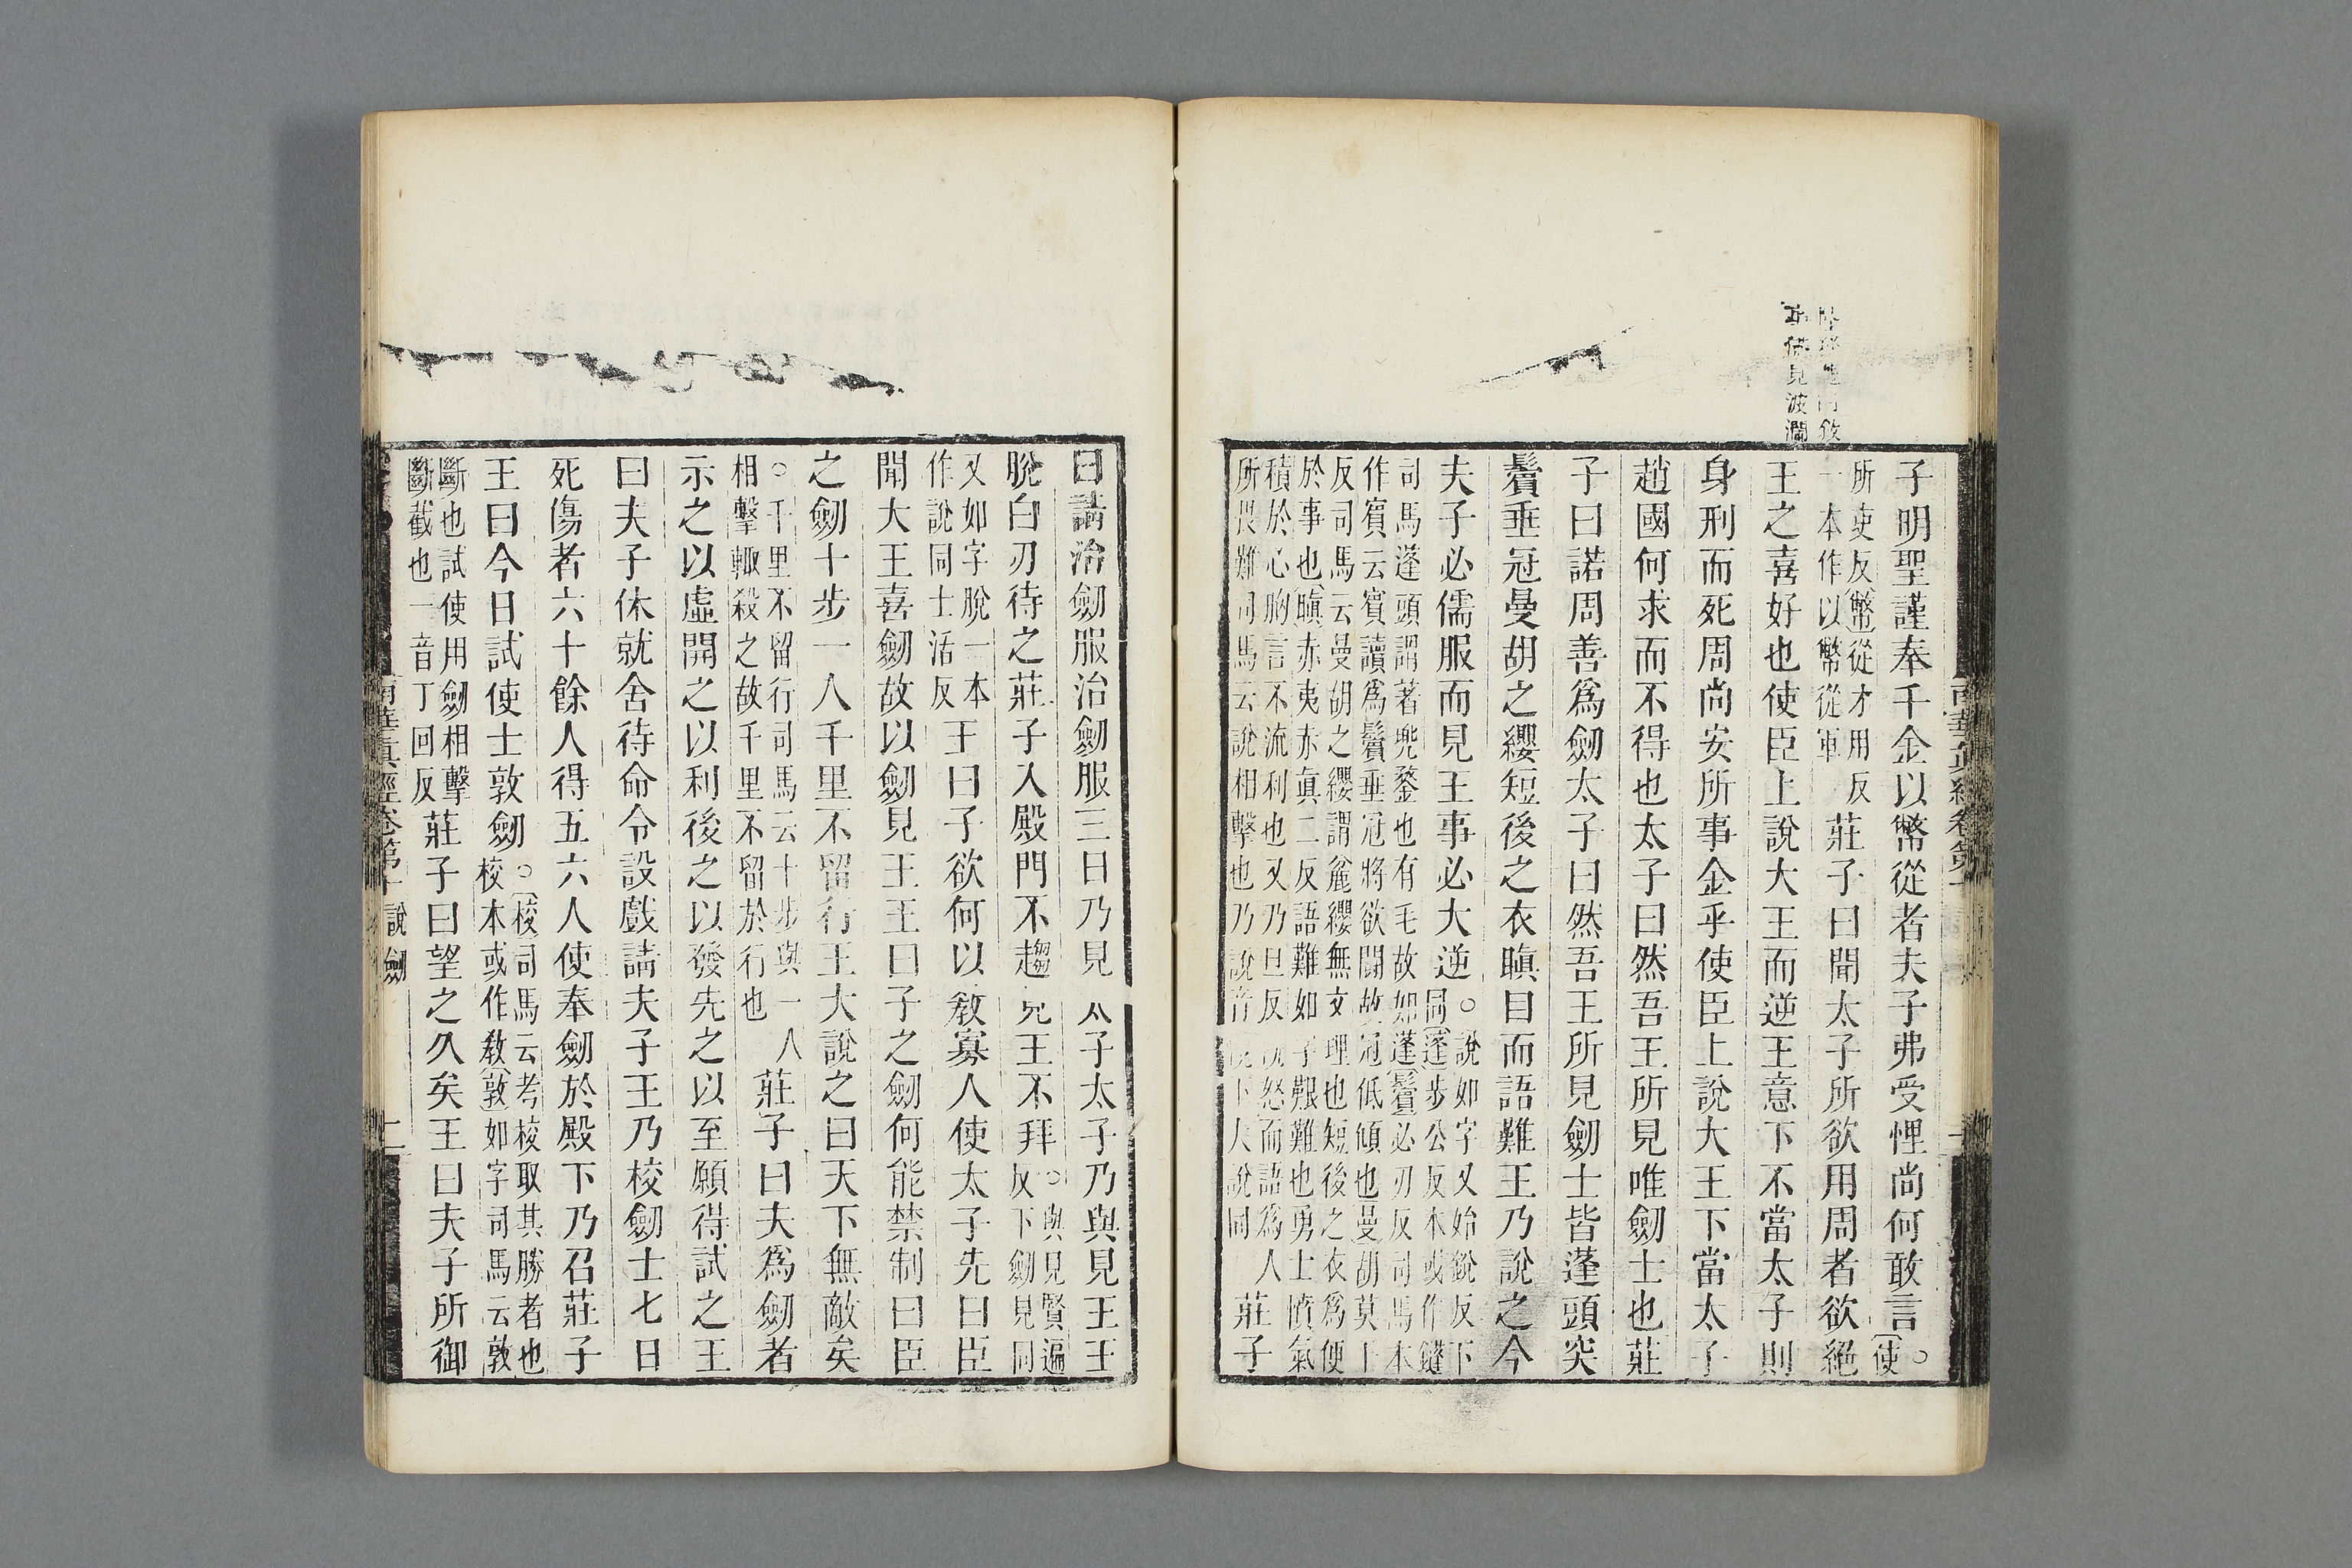 子明聖謹奉千金以幣從者夫子弗受悝尚何敢言○使
所吏反幣從才用反
一本作以幣從軍
莊子曰聞太子所欲用周者欲絕
王之喜好也使臣上說大王而逆王意下不當太子則
身刑而死周尚安所事金乎使臣上說大王下當太子
趙國何求而不得也太子曰然吾王所見唯劒士也莊
子曰諾周善爲劒太子曰然吾王所見劒士皆蓬頭突
鬢垂冠曼胡之纓短後之衣瞋目而語難王乃說之今
夫子必儒服而見王事必大逆
○說如字又始銳反下
同蓬步公反本或作鏠
司馬蓬頭謂著兠鍪也有毛故如蓬鬢必刃反司馬本
作賓云賓讀爲鬢垂冠將欲鬪故冠低傾也曼胡莫干
反司馬云曼胡之纓謂麄纓無文理也短後之衣爲便
於事也瞋赤夷赤眞二反語難如字艱難也勇士憤氣
積於心胸言不流利也又乃旦反
怒而語爲人
所畏難司馬云說相擊也乃說音
下大說同
莊子
曰請治劒服治劒服三日乃見太子太子乃與見王王
脫白刃待之莊子入殿門不趨見王不拜
○與見賢遍
反下劒見同
又如字脫一本
作說同士活反
王曰子欲何以敎寡人使太子先曰臣
聞大王喜劒故以劒見王王曰子之劒何能禁制曰臣
之劒十步一人千里不留行王大說之曰天下無敵矣
○千里不留行司馬云十步與一人
相擊輙殺之故千里不留於行也
莊子曰夫爲劒者
示之以虛開之以利後之以發先之以至願得試之王
曰夫子休就舍待命令設戲請夫子王乃校劒士七日
死傷者六十餘人得五六人使奉劒於殿下乃召莊子
王曰今日試使士敦劒
○校司馬云考校取其勝者也
校本或作敎敦如字司馬云敦
斷也試使用劒相擊
斷截也一音丁回反
莊子曰望之久矣王曰夫子所御
南華眞經卷第十
說劒
二